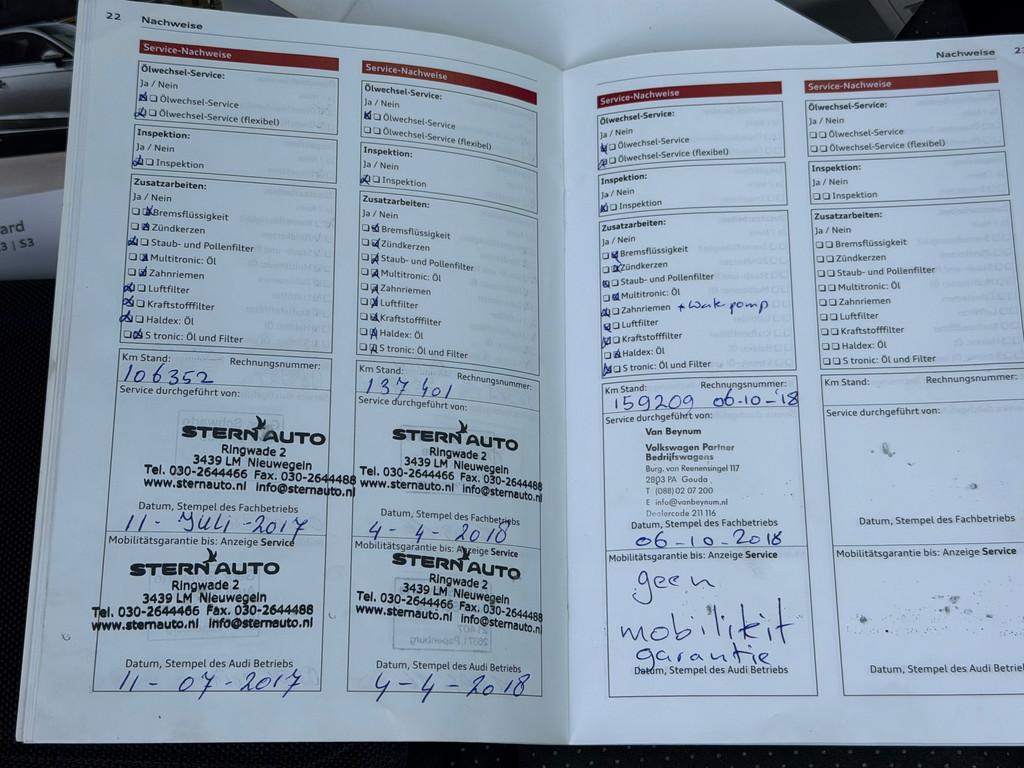 22 Nachweise
Service-Nachweise
Ölwechsel-Service:
Ja / Nein
Ölwechsel-Service
Ölwechsel-Service (flexibel)
Inspektion:
Ja / Nein
Inspektion
Zusatzarbeiten:
Ja / Nein
Bremsflüssigkeit
Zündkerzen
Staub- und Pollenfilter
Multitronic: Öl
Zahnriemen
Luftfilter
Kraftstofffilter
Haldex: Öl
S tronic: Öl und Filter
Km Stand: Rechnungsnummer:
106352
Service durchgeführt von:
STERN AUTO
Ringwade 2
3439 LM Nieuwegein
Tel. 030-2644466 Fax. 030-2644488
www.sternauto.nl info@sternauto.nl
Datum, Stempel des Fachbetriebs
11 - Juli - 2017
Mobilitätsgarantie bis: Anzeige Service
STERN AUTO
Ringwade 2
3439 LM Nieuwegein
Tel. 030-2644466 Fax. 030-2644488
www.sternauto.nl info@sternauto.nl
Datum, Stempel des Audi Betriebs
11 - 07 - 2017
Service-Nachweise
Ölwechsel-Service:
Ja / Nein
Ölwechsel-Service
Ölwechsel-Service (flexibel)
Inspektion:
Ja / Nein
Inspektion
Zusatzarbeiten:
Ja / Nein
Bremsflüssigkeit
Zündkerzen
Staub- und Pollenfilter
Multitronic: Öl
Zahnriemen
Luftfilter
Kraftstofffilter
Haldex: Öl
S tronic: Öl und Filter
Km Stand: Rechnungsnummer:
137 401
Service durchgeführt von:
STERN AUTO
Ringwade 2
3439 LM Nieuwegein
Tel. 030-2644466 Fax. 030-2644488
www.sternauto.nl info@sternauto.nl
Datum, Stempel des Fachbetriebs
4 - 4 - 2018
Mobilitätsgarantie bis: Anzeige Service
STERN AUTO
Ringwade 2
3439 LM Nieuwegein
Tel. 030-2644466 Fax. 030-2644488
www.sternauto.nl info@sternauto.nl
Datum, Stempel des Audi Betriebs
4 - 4 - 2018
Nachweise 23
Service-Nachweise
Ölwechsel-Service:
Ja / Nein
Ölwechsel-Service
Ölwechsel-Service (flexibel)
Inspektion:
Ja / Nein
Inspektion
Zusatzarbeiten:
Ja / Nein
Bremsflüssigkeit
Zündkerzen
Staub- und Pollenfilter
Multitronic: Öl
Zahnriemen + wate pomp
Luftfilter
Kraftstofffilter
Haldex: Öl
S tronic: Öl und Filter
Km Stand: Rechnungsnummer:
159209 06-10-'18
Service durchgeführt von:
Van Beynum
Volkswagen Partner
Bedrijfswagens
Burg. van Reenensingel 117
2803 PA Gouda
T (088) 02 07 200
E info@vanbeynum.nl
Dealercode 211 116
Datum, Stempel des Fachbetriebs
06 - 10 - 2018
Mobilitätsgarantie bis: Anzeige Service
geen
mobilikit
garantie
Datum, Stempel des Audi Betriebs
Service-Nachweise
Ölwechsel-Service:
Ja / Nein
Ölwechsel-Service
Ölwechsel-Service (flexibel)
Inspektion:
Ja / Nein
Inspektion
Zusatzarbeiten:
Ja / Nein
Bremsflüssigkeit
Zündkerzen
Staub- und Pollenfilter
Multitronic: Öl
Zahnriemen
Luftfilter
Kraftstofffilter
Haldex: Öl
S tronic: Öl und Filter
Km Stand: Rechnungsnummer:
Service durchgeführt von:
Datum, Stempel des Fachbetriebs
Mobilitätsgarantie bis: Anzeige Service
Datum, Stempel des Audi Betriebs